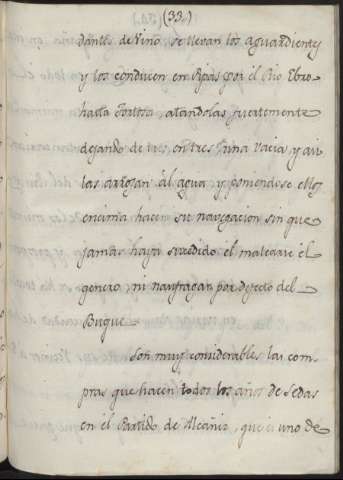 (33.)
dante de vino se llevan los aguardientes
y los conducen en Pipas por el Rio Ebro
hasta Tortosa, atandolas fuertemente
dejando de tres en tres una vacia y asi
las arrojan al agua y poniendose ellos
encima hacen su navegacion sin que
jamas haya sucedido el malearse el
genero, ni naufragar por defecto del
Buque
Son muy considerables las com-
pras que hacen todos los años de Sedas
en el Partido de Alcañiz, que es uno de